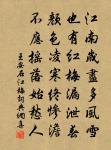 江南歲盡多風雪
也有紅梅漏泄春
顏色凌寒終慘澹
不應搖落始愁人
王安石江梅詞典網專